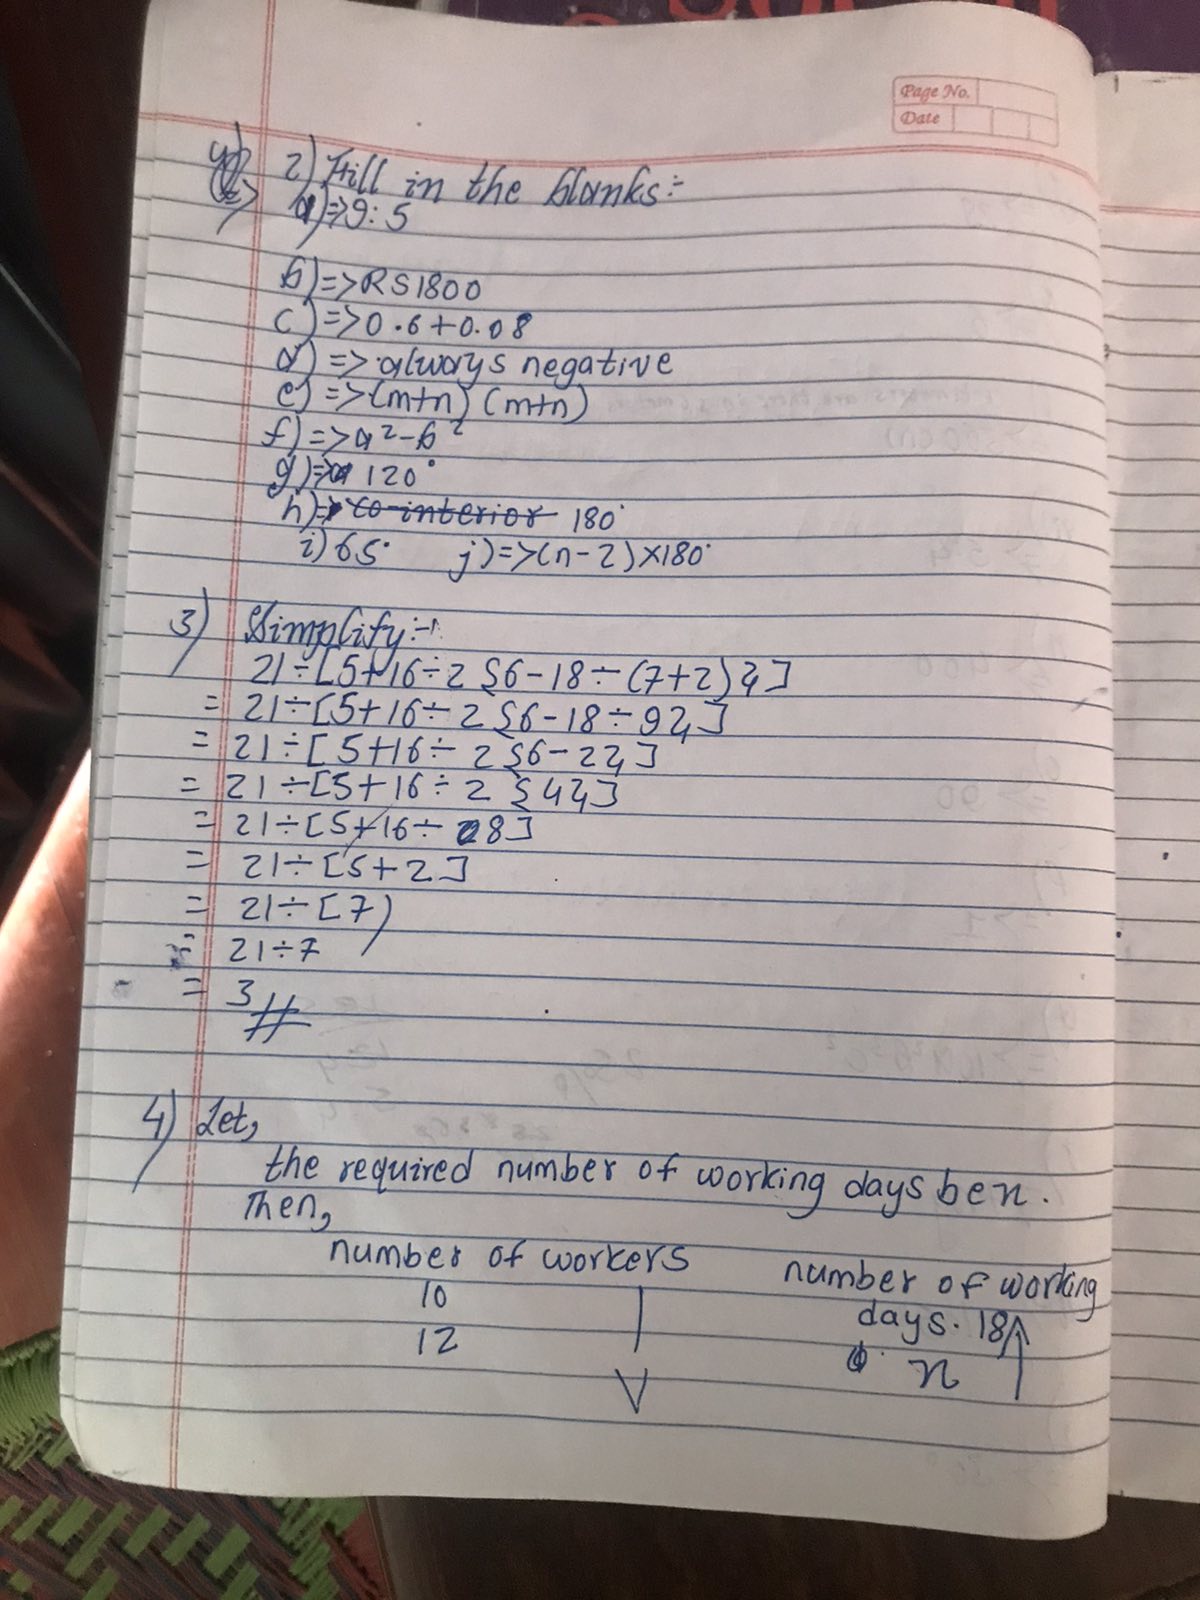 Page No.
Date
2) Fill in the blanks:-
a) => 9:5
b) => RS 1800
c) => 0.6+0.08
d) => always negative
e) => (m+n) (m+n)
f) => a²-b²
g) => 120°
h) => co-interior 180°
i) 65° j) => (n-2)×180°
3) Simplify:-
21÷[5+16÷2{6-18÷(7+2)}]
= 21÷[5+16÷2{6-18÷9}]
= 21÷[5+16÷2{6-2}]
= 21÷[5+16÷2{4}]
= 21÷[5+16÷8]
= 21÷[5+2]
= 21÷[7)
= 21÷7
= 3
4) Let,
the required number of working days be x.
Then,
number of workers
number of working
10
days. 18
12
x